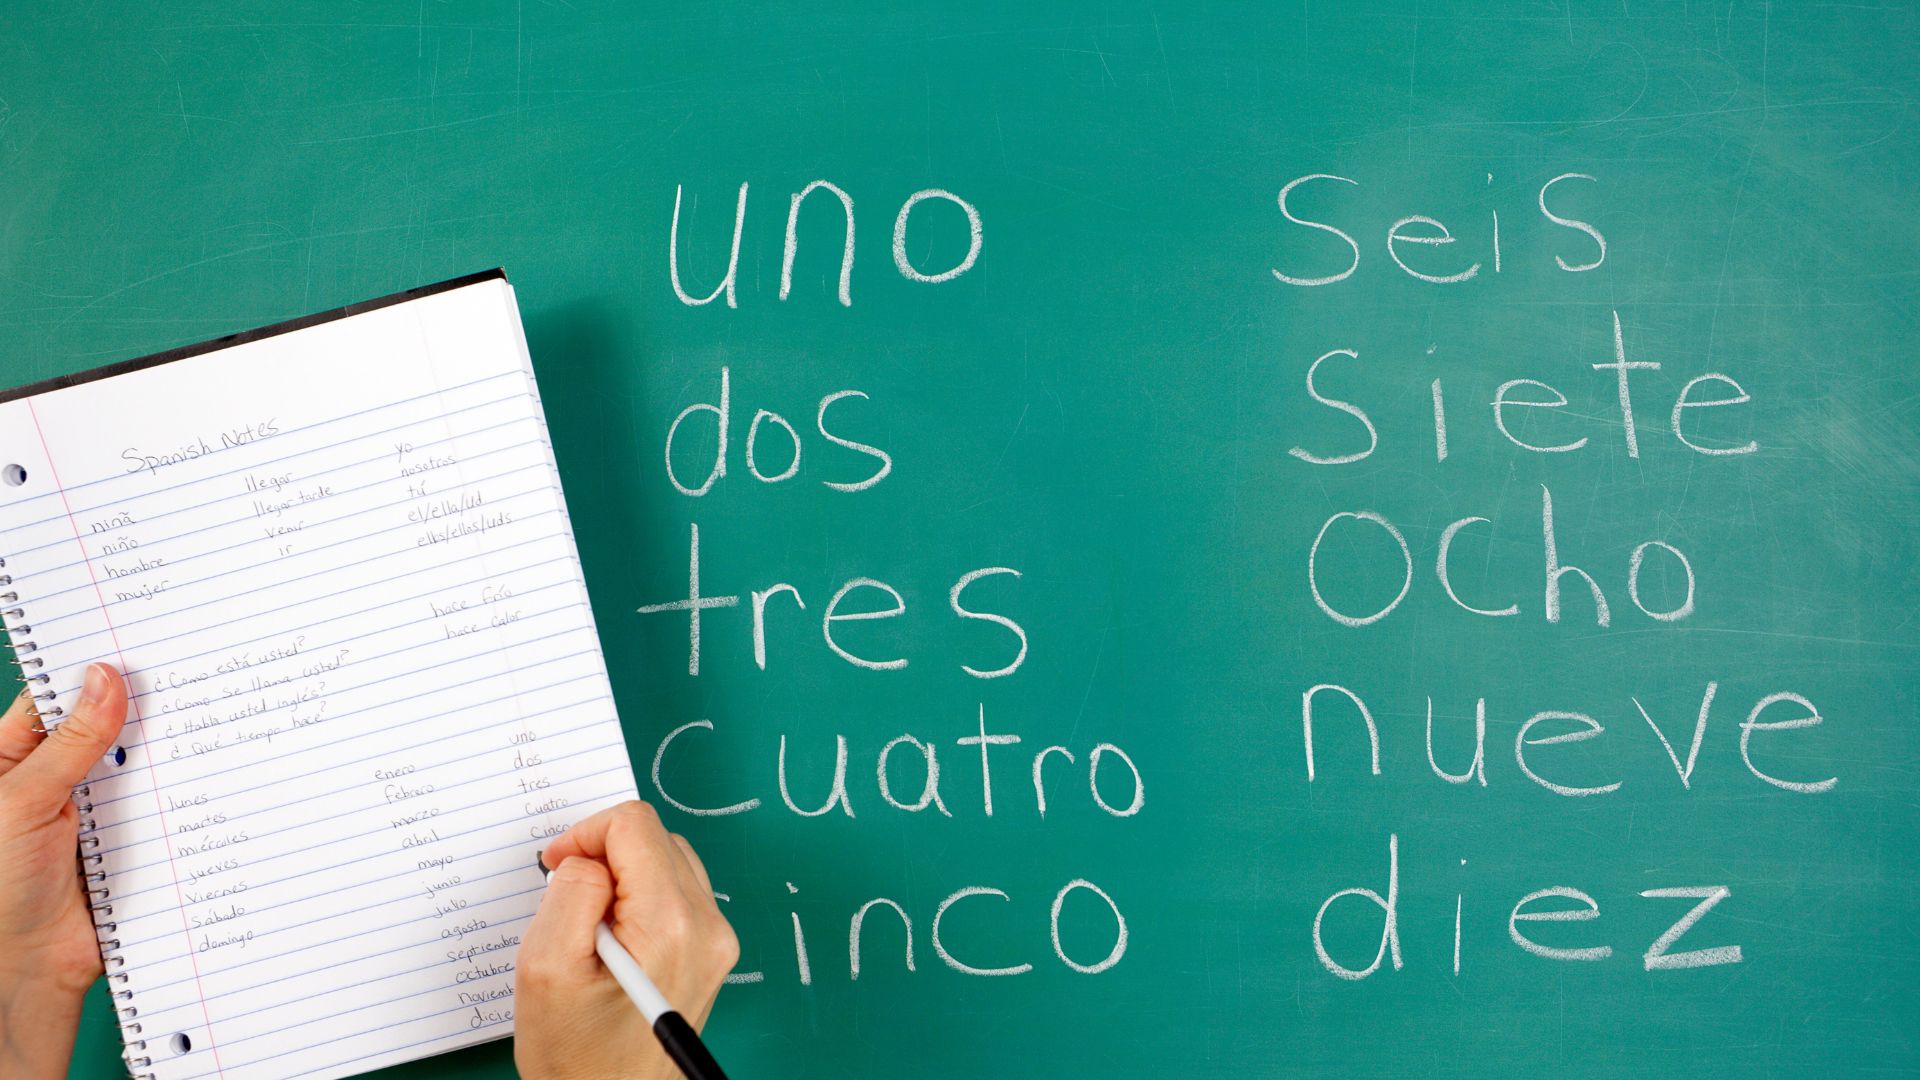 Spanish Notes
ninã
niño
hombre
mujer
llegar
llegar tarde
venir
ir
yo
nosotros
tú
el/ella/ud
ellos/ellas/uds
hace frío
hace calor
¿Como está usted?
¿Como se llama usted?
¿Habla usted inglés?
¿Qué tiempo hace?
lunes
martes
miércoles
jueves
viernes
sábado
domingo
enero
febrero
marzo
abril
mayo
junio
julio
agosto
septiembre
octubre
noviemb
dicie
uno
dos
tres
cuatro
cinco
uno
dos
tres
cuatro
cinco
seis
siete
ocho
nueve
diez